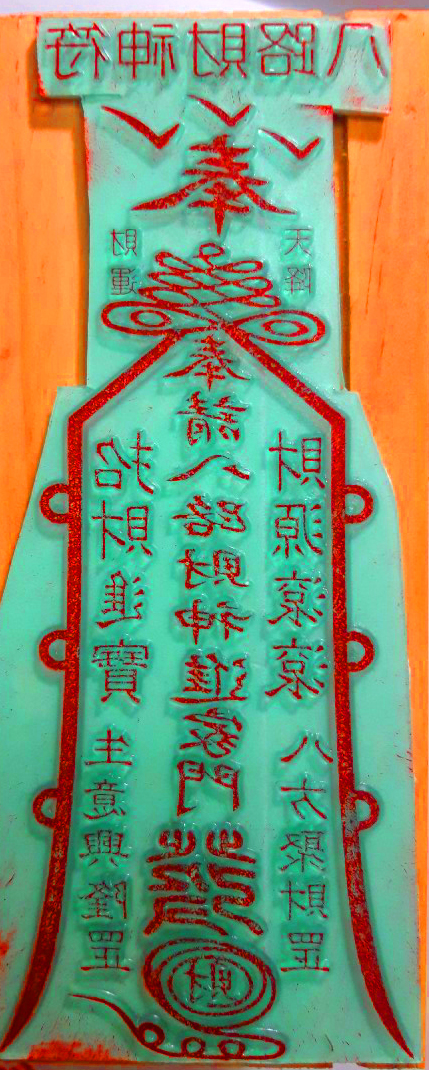 八路財神符
奉
天降
財運
財源滾滾 八方聚財罡
奉請八路財神進家門
招財進寶 生意興隆罡
財